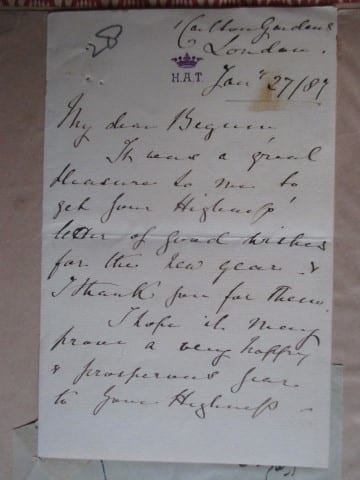 28
1 Carlton Gardens
London.
H.A.T.
Jany 27/87
My dear Begum
It was a great
pleasure to me to
get Your Highness'
letter of good wishes
for the New Year &
I thank you for them.
I hope it may
prove a very happy
& prosperous year
to Your Highness -